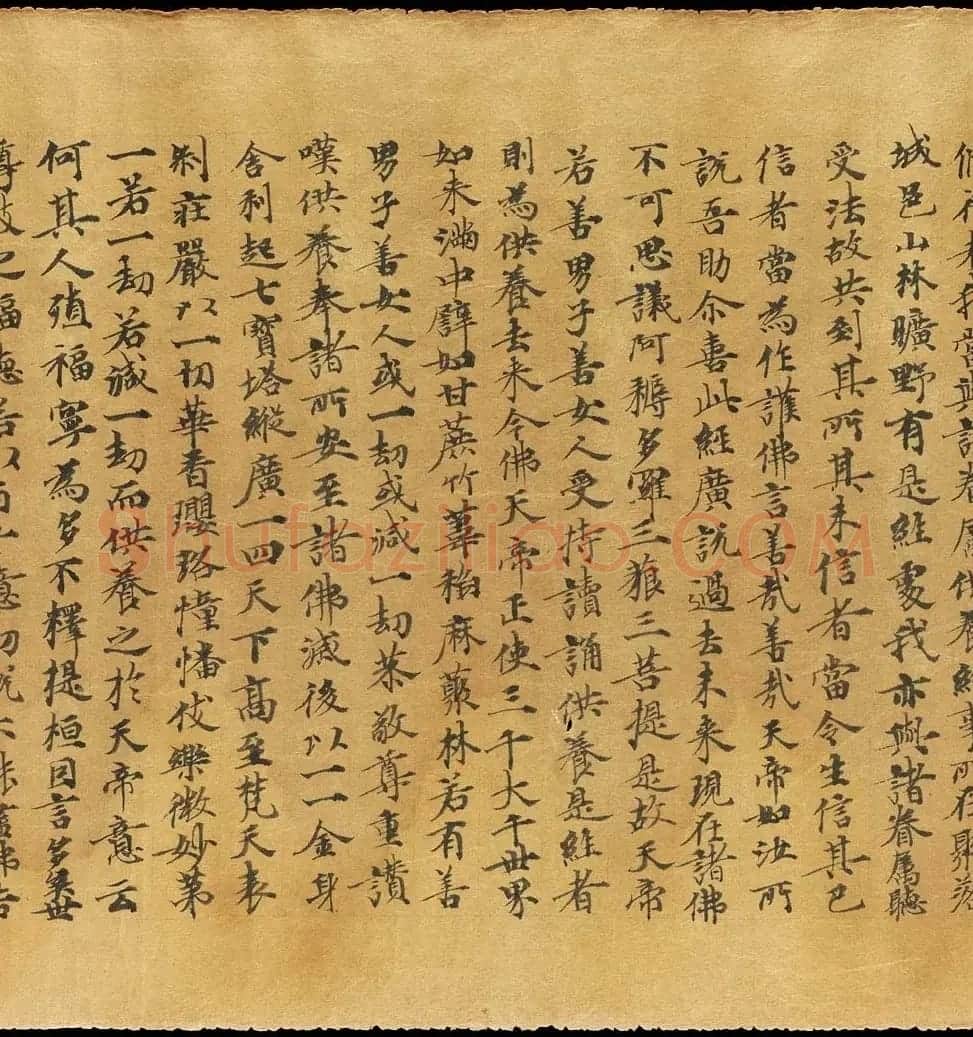 修行者我當與諸眷屬供養給事所在聚落
城邑山林曠野有是經處我亦與諸眷屬聽
受法故共到其所其未信者當令生信其已
信者當為作護佛言善哉善哉天帝如汝所
說吾助尒喜此經廣說過去未来現在諸佛
不可思議阿耨多羅三藐三菩提是故天帝
若善男子善女人受持讀誦供養是經者
則為供養去来今佛天帝正使三千大千世界
如来滿中譬如甘蔗竹葦稻麻叢林若有善
男子善女人或一劫或減一劫恭敬尊重讚
嘆供養奉諸所安至諸佛滅後以一一金身
舍利起七寶塔縱廣一四天下高至梵天表
刹莊嚴以一切華香瓔珞幢幡伎樂微妙第
一若一劫若減一劫而供養之於天帝意云
何其人殖福寧為多不釋提桓因言多矣世
尊彼之福德若以百千億劫說不能盡佛告
Shufaziliao.COM